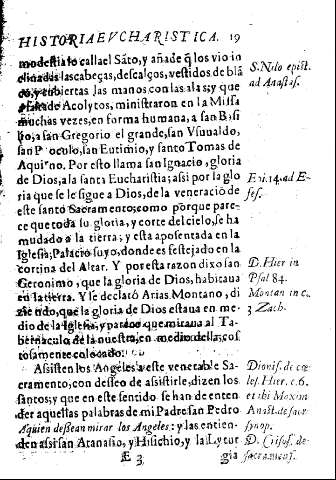 HISTORIA EVCHARISTICA. 19
modestia lo calla el Sãto, y añade q̃ los vio in
clinadas las cabeças, descalços, vestidos de blã
co, y cubiertas las manos con las alas; y que
de Acolytos, ministraron en la Missa
muchas vezes, en forma humana, a san Basi
lio, a san Gregorio el grande, san Vsualdo,
san P oculo, san Eutimio, y santo Tomas de
Aquino. Por esto llama san Ignacio, gloria
de Dios, a la santa Eucharistia; assi por la glo
ria que se le sigue a Dios, de la veneraciõ de
este santo Sacramento; como porque pare-
ce que toda su gloria, y corte del cielo, se ha
mudado a la tierra; y esta aposentada en la
Iglesia, Palacio suyo, donde es festejado en la
cortina del Altar. Y por esta razon dixo san
Geronimo, que la gloria de Dios, habitaua
en la tierra. Y se declarò Arias Montano, di
ziendo, que la gloria de Dios estaua en me-
dio de la Iglesia, y que miraua al Ta-
bernaculo, de la nuestra, en medio della, cos
tosamente colocado.
Assisten los Angeles a este venerable Sa-
cramento, con desseo de assistirle, dizen los
santos; y que en este sentido se han de enten
der aquellas palabras de mi Padre san Pedro
A quien dessean mirar los Angeles: y las entien-
den assi san Atanasio, y Hisichio, y la Lytur
Æ 3 gia
S. Nilo epist.
ad Anastas.
Epi. 14. ad E-
fes.
D. Hier in
Psal 84.
Montan in c.
3 Zach.
Dionis. de cœ
lest. Hier. c. 6.
et ibi Maxim
Anast. de sacr
synop.
D. Crisos. de
sacramens.